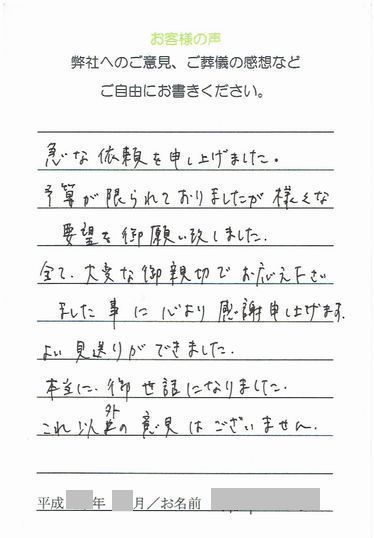 お客様の声
弊社へのご意見、ご葬儀の感想など
ご自由にお書きください。
急な依頼を申し上げました。
予算が限られておりましたが様々な
要望を御願い致しました。
全て、大変な御親切でお応え下さい
ました事に心より感謝申し上げます。
よい見送りができました。
本当に、御世話になりました。
これ以外の意見はございません。
平成 年 月／お名前